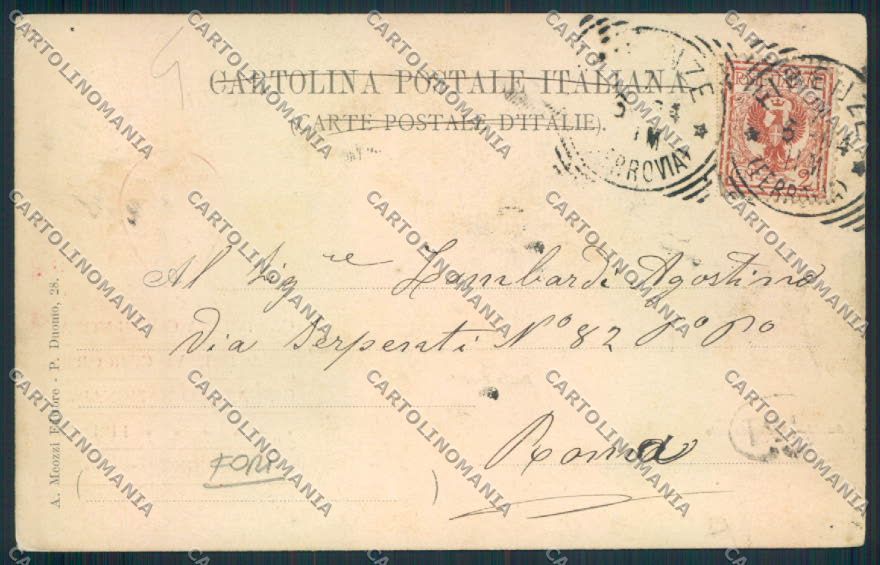 CARTOLINA POSTALE ITALIANA
(CARTE POSTALE D'ITALIE).
FIRENZE
(FERROVIA)
Al Sig.re Lombardi Agostino
Via Serpenti No 82 Po Po
Roma
FORI
A. Meozzi Editore - P. Duomo, 28.
CARTOLINOMANIA